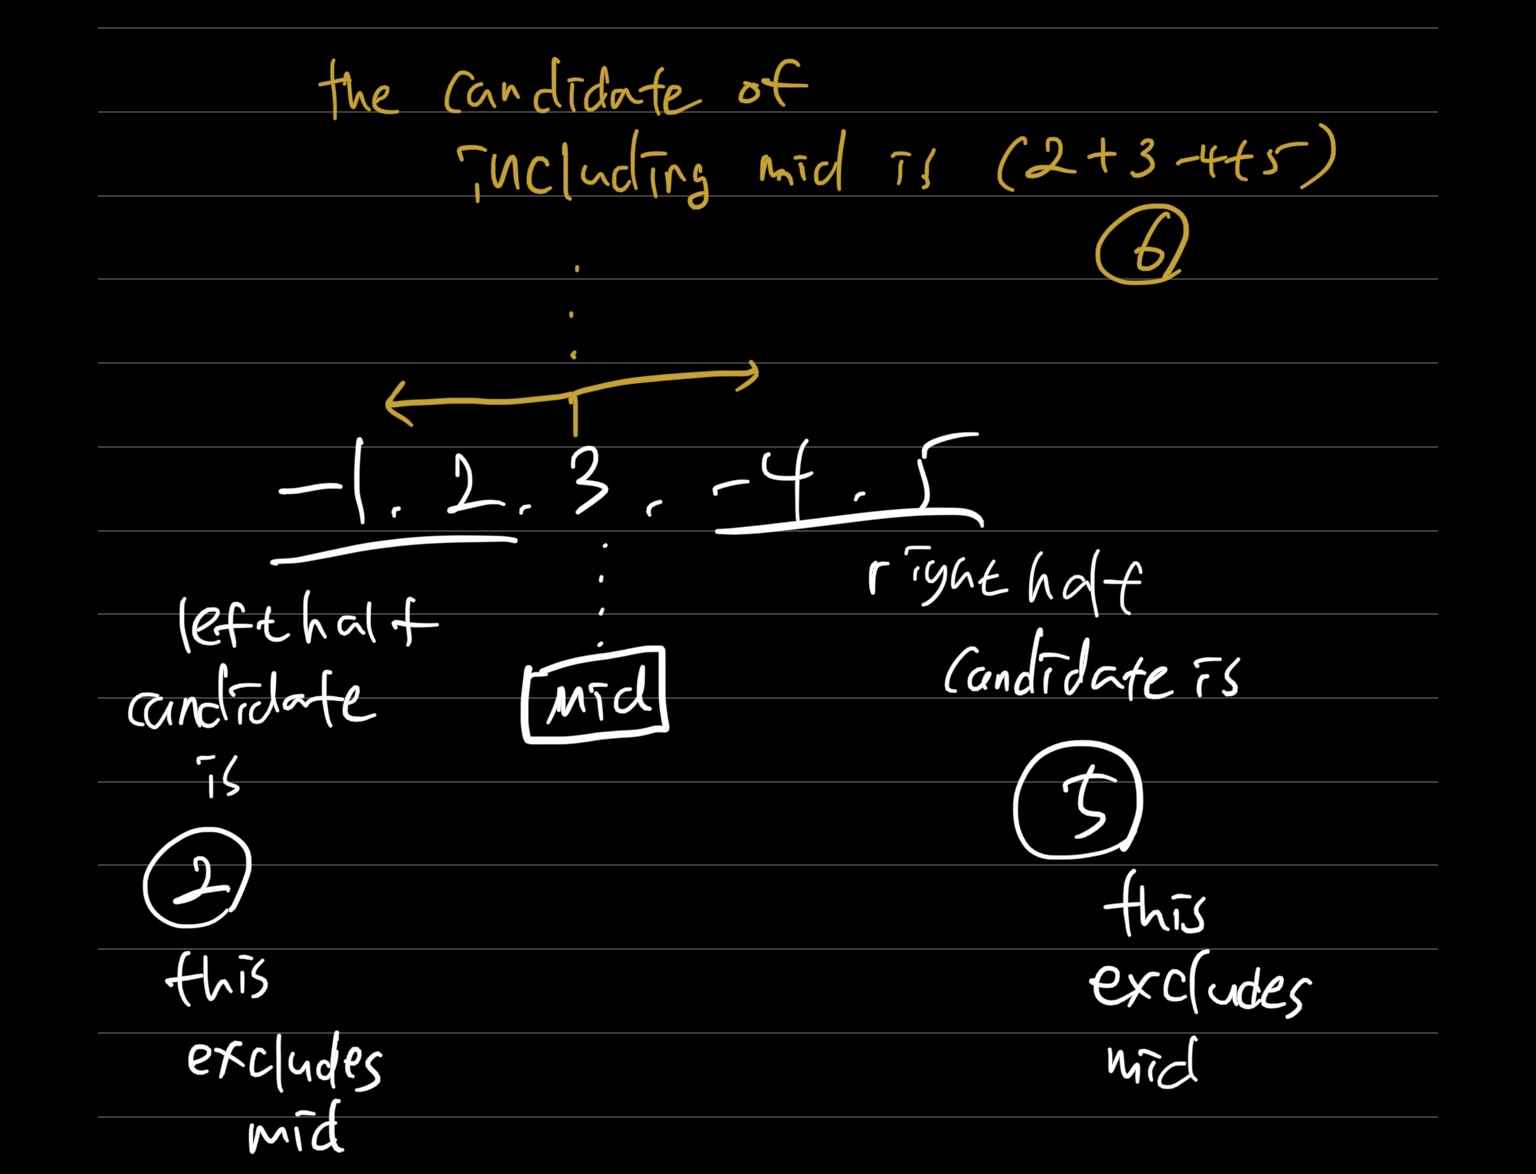 the candidate of
including mid is (2+3-4+5)
6
-1. 2. 3. -4. 5
left half
candidate
is
2
this
excludes
mid
mid
right half
candidate is
5
this
excludes
mid